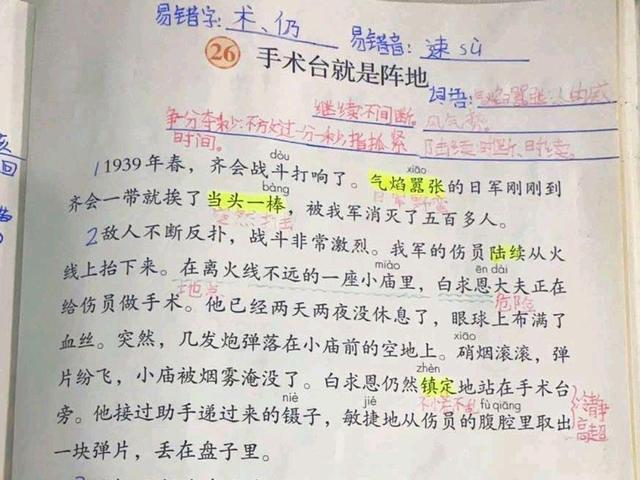 易错字：术、仍
易错音：速 sù
26 手术台就是阵地
词语：气焰嚣张：人的威风气势。
继续不间断。
争分夺秒：不放过一分一秒，指抓紧时间。
陆续：时断、时续。
dòu xiāo
1 1939年春，齐会战斗打响了。气焰嚣张的日军刚刚到
bàng
齐会一带就挨了当头一棒，被我军消灭了五百多人。
2 敌人不断反扑，战斗非常激烈。我军的伤员陆续从火
miào ēn dài
线上抬下来。在离火线不远的一座小庙里，白求恩大夫正在
地点 危险
给伤员做手术。他已经两天两夜没休息了，眼球上布满了
xiāo
血丝。突然，几发炮弹落在小庙前的空地上。硝烟滚滚，弹
zhèn
片纷飞，小庙被烟雾淹没了。白求恩仍然镇定地站在手术台
niè jié fù qiāng
旁。他接过助手递过来的镊子，敏捷地从伤员的腹腔里取出
高超
一块弹片，丢在盘子里。